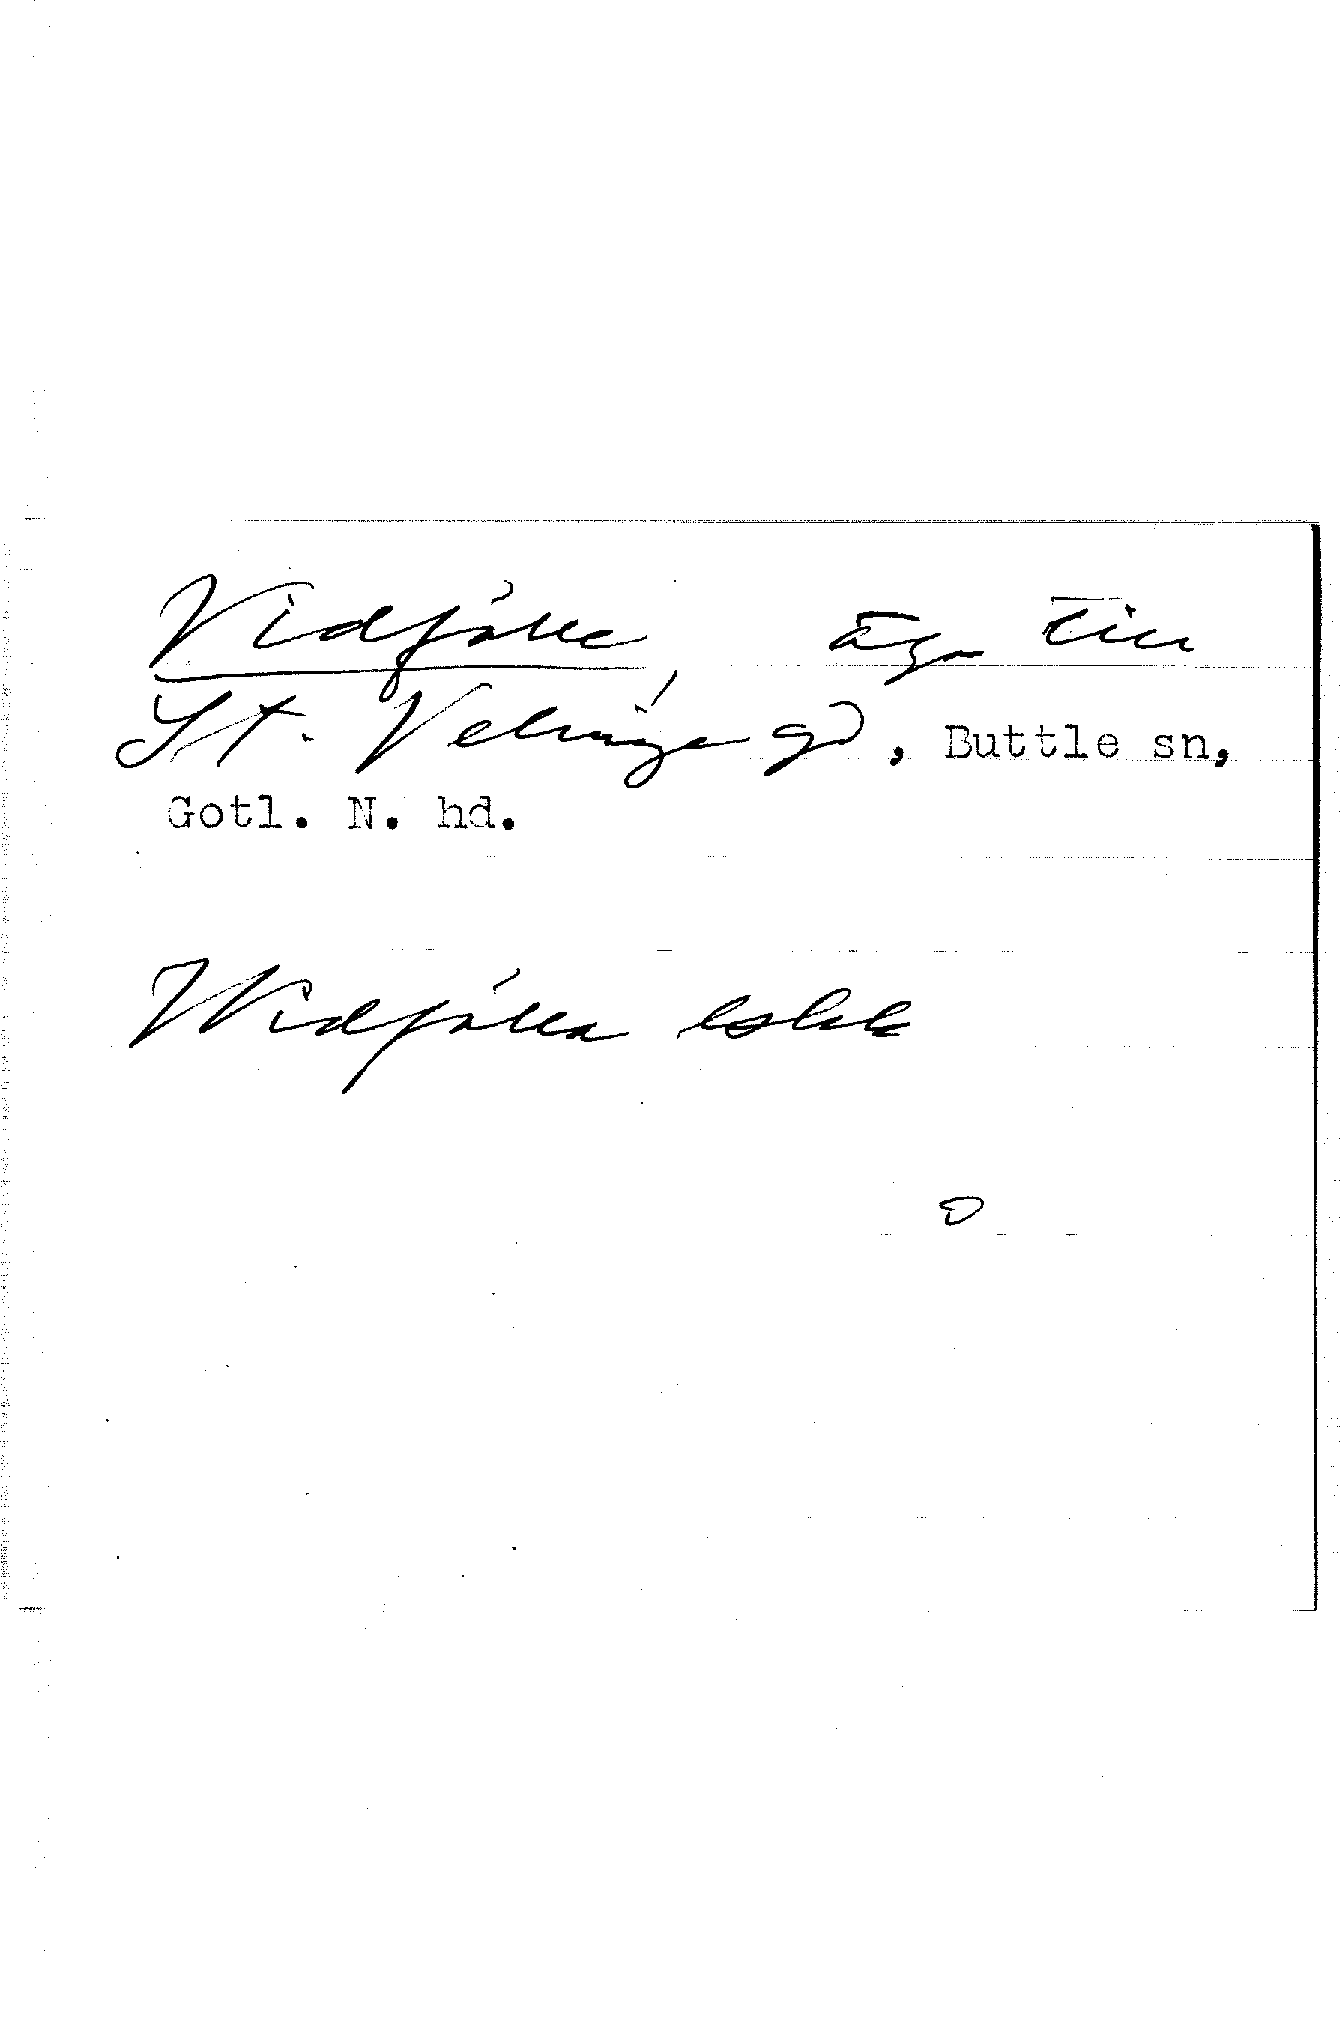 Vidfälle, äga till
St. Velinge gd, Buttle sn,
Gotl. N. hd.
Widfälla